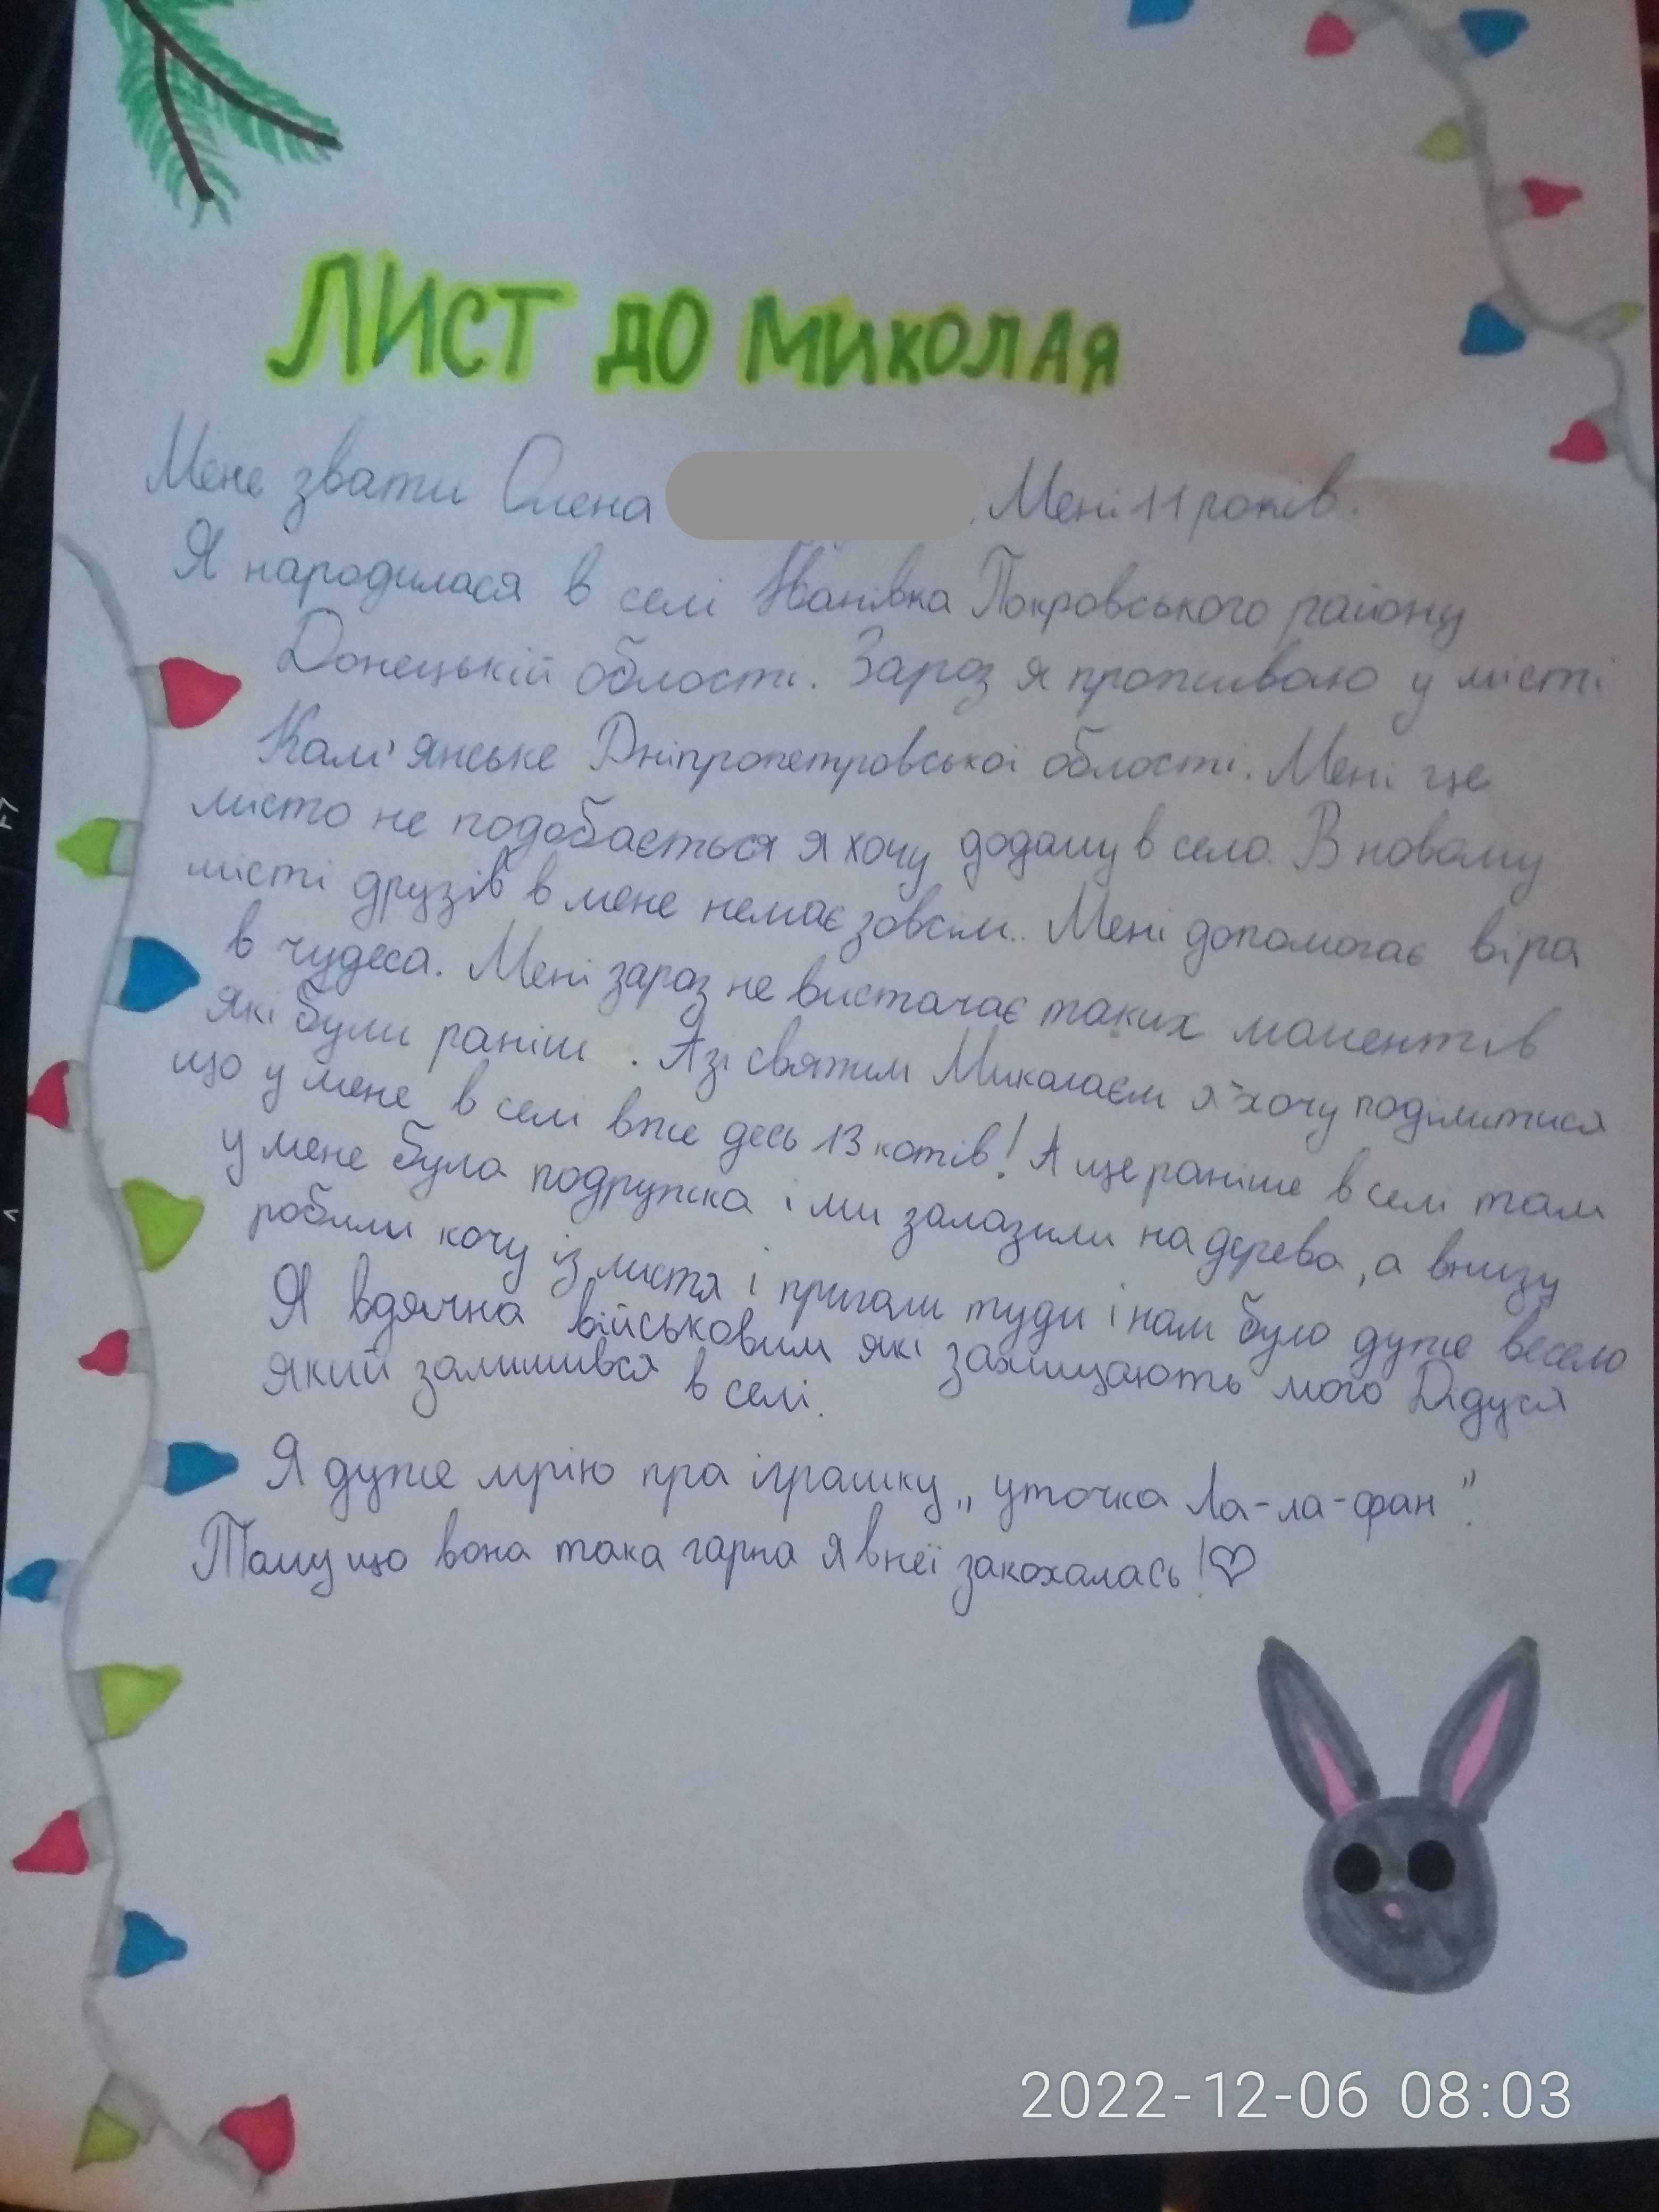 ЛИСТ ДО МИКОЛАЯ
Мене звати Олена . Мені 11 років.
Я народилася в селі Іванівка Покровського району
Донецькій області. Зараз я проживаю у місті
Кам'янське Дніпропетровської області. Мені це
місто не подобається я хочу додому в село. В новому
місті друзів в мене немає зовсім.. Мені допомогає віра
в чудеса. Мені зараз не вистачає таких моментів
які були раніш . А зі святим Миколаєм я хочу поділитися
що у мене в селі вже десь 13 котів! А ще раніше в селі там
у мене була подружка і ми залазили на дерева, а внизу
робили кочу із листя і пригали туди і нам було дуже весело
Я вдячна військовим які захищають мого Дідуся
який залишився в селі.
Я дуже мрію пра іграшку „уточка Ла-ла-фан".
Тому що вона така гарна я в неї закохалась!♡
2022-12-06 08:03